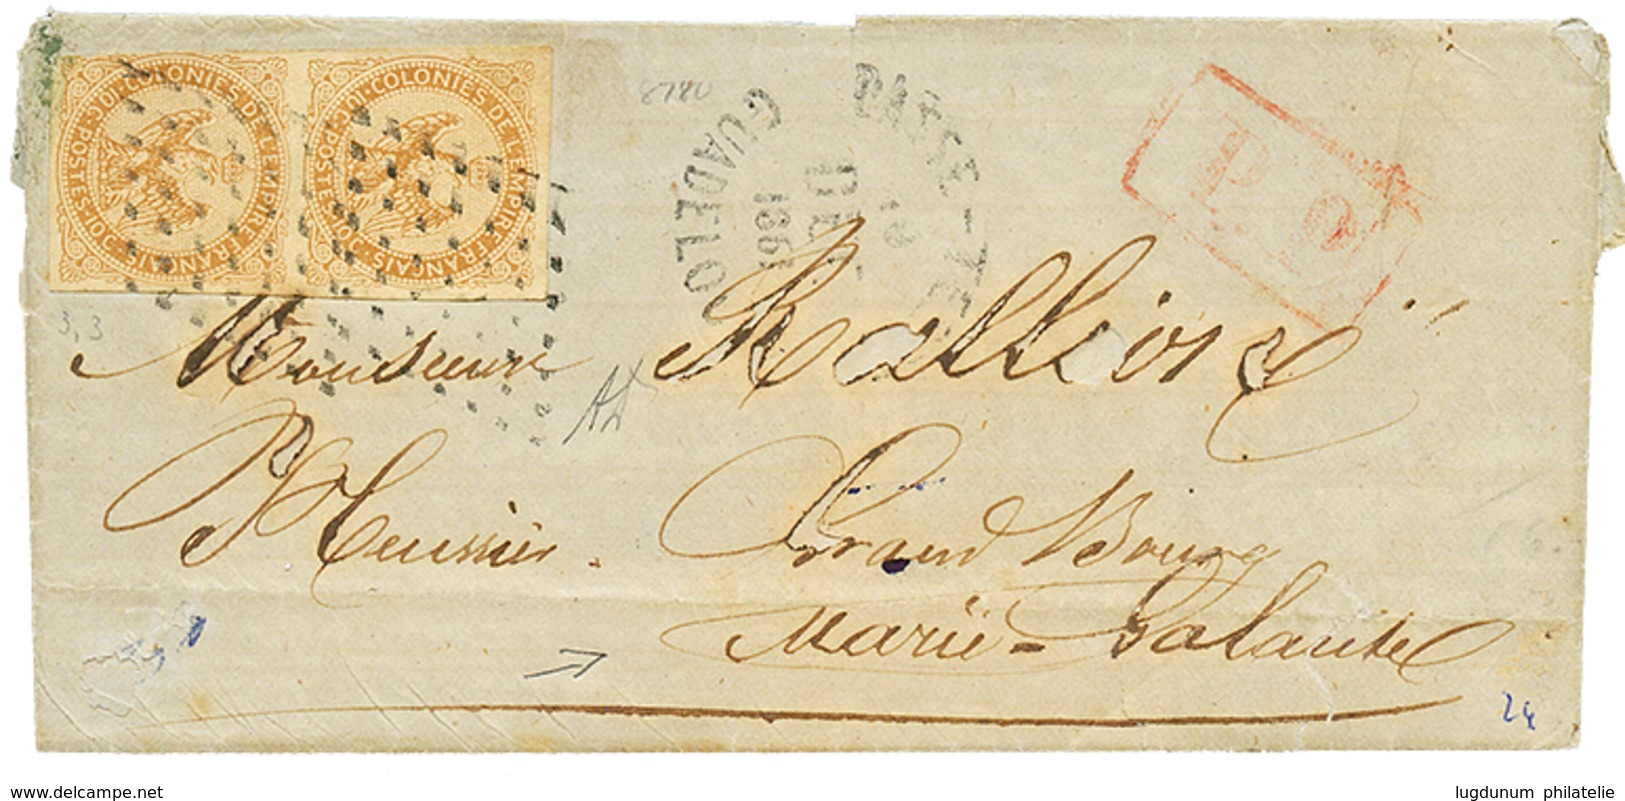 COLONIES DE L'EMPIRE FRANÇAIS · 10C · POSTES · 10C ·
COLONIES DE L'EMPIRE FRANÇAIS · 10C · POSTES · 10C ·
8780
BASSE-TE
DEC
186
GUADELO
P.P.
3,3
Monsieur Rallion
Huissier.
Grand Bourg
Marie-Galante
24
www.delcampe.net
lugdunum philatelie